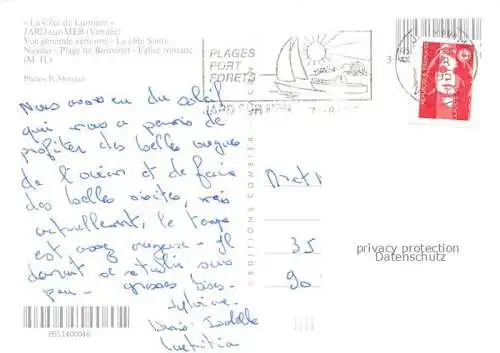 « La Côte de Lumière »
JARD-sur-MER (Vendée)
Vue générale aérienne - La côte Saint-
Nicolas - Plage de Boisvinet - Eglise romane
(M. H.)
Photos P.
PLAGES
PORT
FORETS
JARD SUR MER
Nous avons eu du soleil
qui nous a permis de
profiter des belles vagues
de l'océan et de faire
des belles visites, mais
actuellement, le temps
est assez nuageux - Il
devrait se rétablir sous
peu - grosses bises -
Sylviane
Isabelle
Laetitia
EDITIONS COMBIER
35
90
privacy protection
Datenschutz